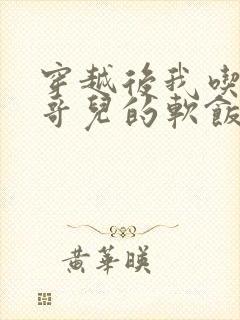 穿越後我喫
哥兒的軟飯
黃華暎